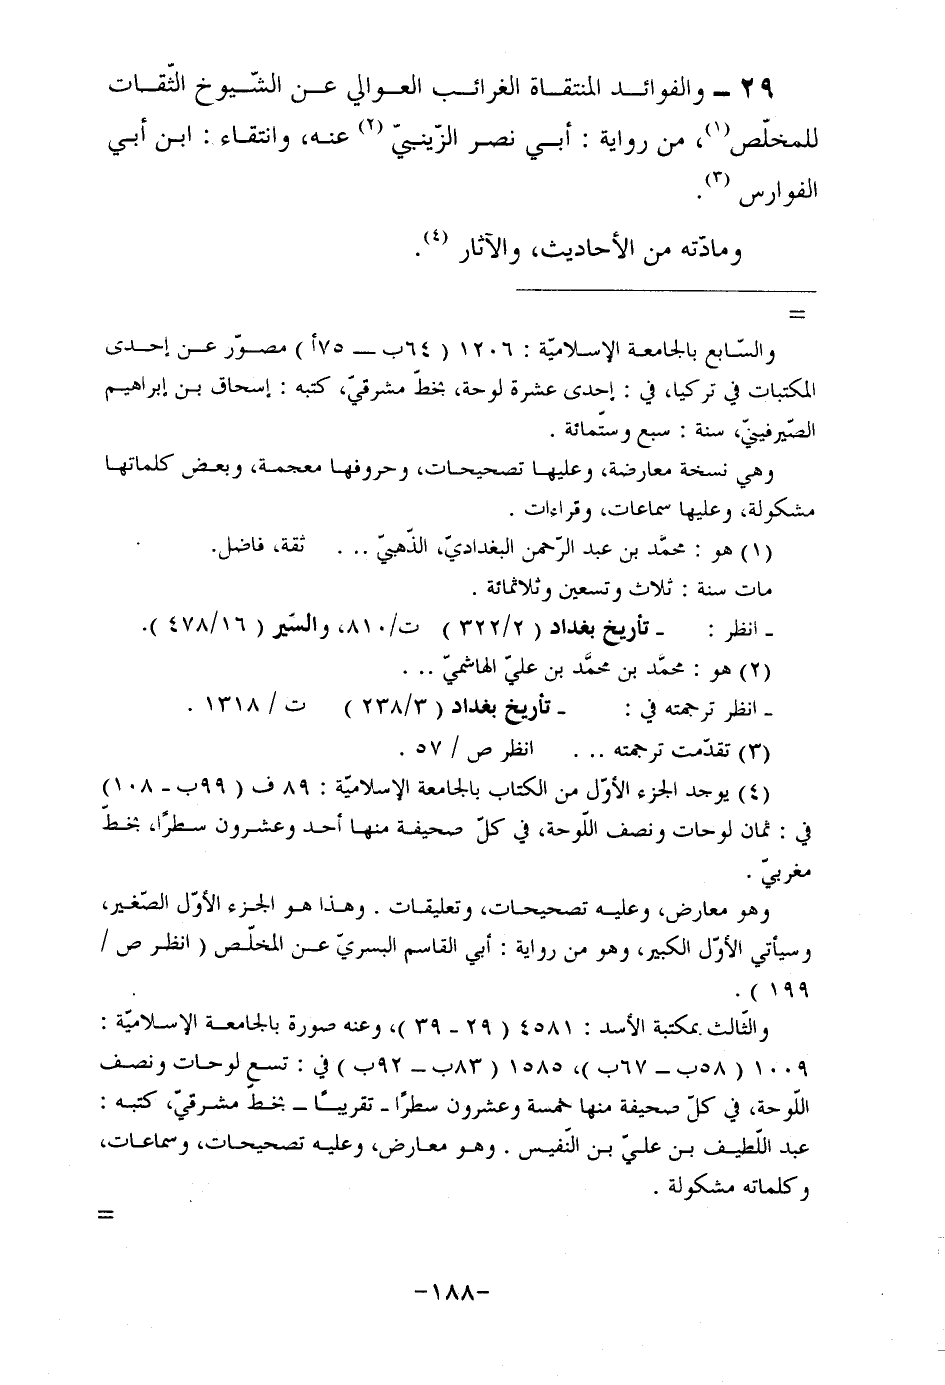 ٢٩ – والفوائد المنتقاة الغرائب العوالي عن الشّيوخ الثّقات
للمخلّص(١)، من رواية : أبي نصر الزّينبيّ (٢) عنه، وانتقاء : ابن أبي
الفوارس (٣).
ومادّته من الأحاديث، والآثار (٤).
=
والسّابع بالجامعة الإسلاميّة : ١٢٠٦ ( ٦٤ب – ٧٥أ ) مصوّر عن إحدى
المكتبات في تركيا، في : إحدى عشرة لوحة، بخطّ مشرقيّ، كتبه : إسحاق بن إبراهيم
الصّيرفينيّ، سنة : سبع وستّمائة .
وهي نسخة معارضة، وعليها تصحيحات، وحروفها معجمة، وبعض كلماتها
مشكولة، وعليها سماعات، وقراءات .
(١) هو : محمّد بن عبد الرّحمن البغداديّ، الذّهبيّ ... ثقة، فاضل.
مات سنة : ثلاث وتسعين وثلاثمائة .
ـ انظر : ـ تأريخ بغداد ( ٣٢٢/٢ ) ت/٨١٠، والسّير ( ٤٧٨/١٦ ).
(٢) هو : محمّد بن محمّد بن عليّ الهاشميّ ...
ـ انظر ترجمته في : ـ تأريخ بغداد ( ٢٣٨/٣ ) ت / ١٣١٨ .
(٣) تقدّمت ترجمته ... انظر ص / ٥٧ .
(٤) يوجد الجزء الأوّل من الكتاب بالجامعة الإسلاميّة : ٨٩ ف ( ٩٩ب - ١٠٨)
في : ثمان لوحات ونصف اللّوحة، في كلّ صحيفة منها أحد وعشرون سطرًا، بخطّ
مغربيّ .
وهو معارض، وعليه تصحيحات، وتعليقات . وهذا هو الجزء الأوّل الصّغير،
وسيأتي الأوّل الكبير، وهو من رواية : أبي القاسم البسريّ عن المخلّص ( انظر ص /
١٩٩ ) .
والثّالث بمكتبة الأسد : ٤٥٨١ ( ٢٩ - ٣٩ )، وعنه صورة بالجامعة الإسلاميّة :
١٠٠٩ ( ٥٨ب – ٦٧ب )، ١٥٨٥ ( ٨٣ب – ٩٢ب ) في : تسع لوحات ونصف
اللّوحة، في كلّ صحيفة منها خمسة وعشرون سطرًا ـ تقريبًا ـ بخطّ مشرقيّ، كتبه :
عبد اللّطيف بن عليّ بن النّفيس . وهو معارض، وعليه تصحيحات، وسماعات،
وكلماته مشكولة .
=
-١٨٨-